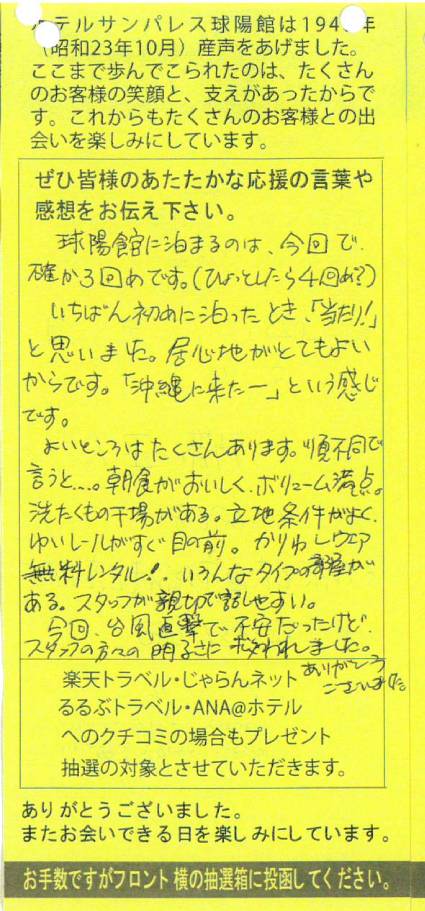 ホテルサンパレス球陽館は194 年
（昭和23年10月）産声をあげました。
ここまで歩んでこられたのは、たくさん
のお客様の笑顔と、支えがあったからで
す。これからもたくさんのお客様との出
会いを楽しみにしています。
ぜひ皆様のあたたかな応援の言葉や
感想をお伝え下さい。
球陽館に泊まるのは、今回で、
確か3回めです。（ひょっとしたら4回め?）
いちばん初めに泊ったとき、「当たり!」
と思いました。居心地がとてもよい
からです。「沖縄に来たー」という感じ
です。
よいところはたくさんあります。順不同で
言うと…。朝食がおいしく、ボリューム満点。
洗たくもの干場がある。立地条件がよく、
ゆいレールがすぐ目の前。かりゆしウェア
無料レンタル!、いろんなタイプの部屋が
ある。スタッフが親切で話しやすい。
今回、台風直撃で不安だったけど、
スタッフの方々の明るさに救われました。
ありがとう
ございました
楽天トラベル・じゃらんネット
るるぶトラベル・ANA@ホテル
へのクチコミの場合もプレゼント
抽選の対象とさせていただきます。
ありがとうございました。
またお会いできる日を楽しみにしています。
お手数ですがフロント横の抽選箱に投函してください。